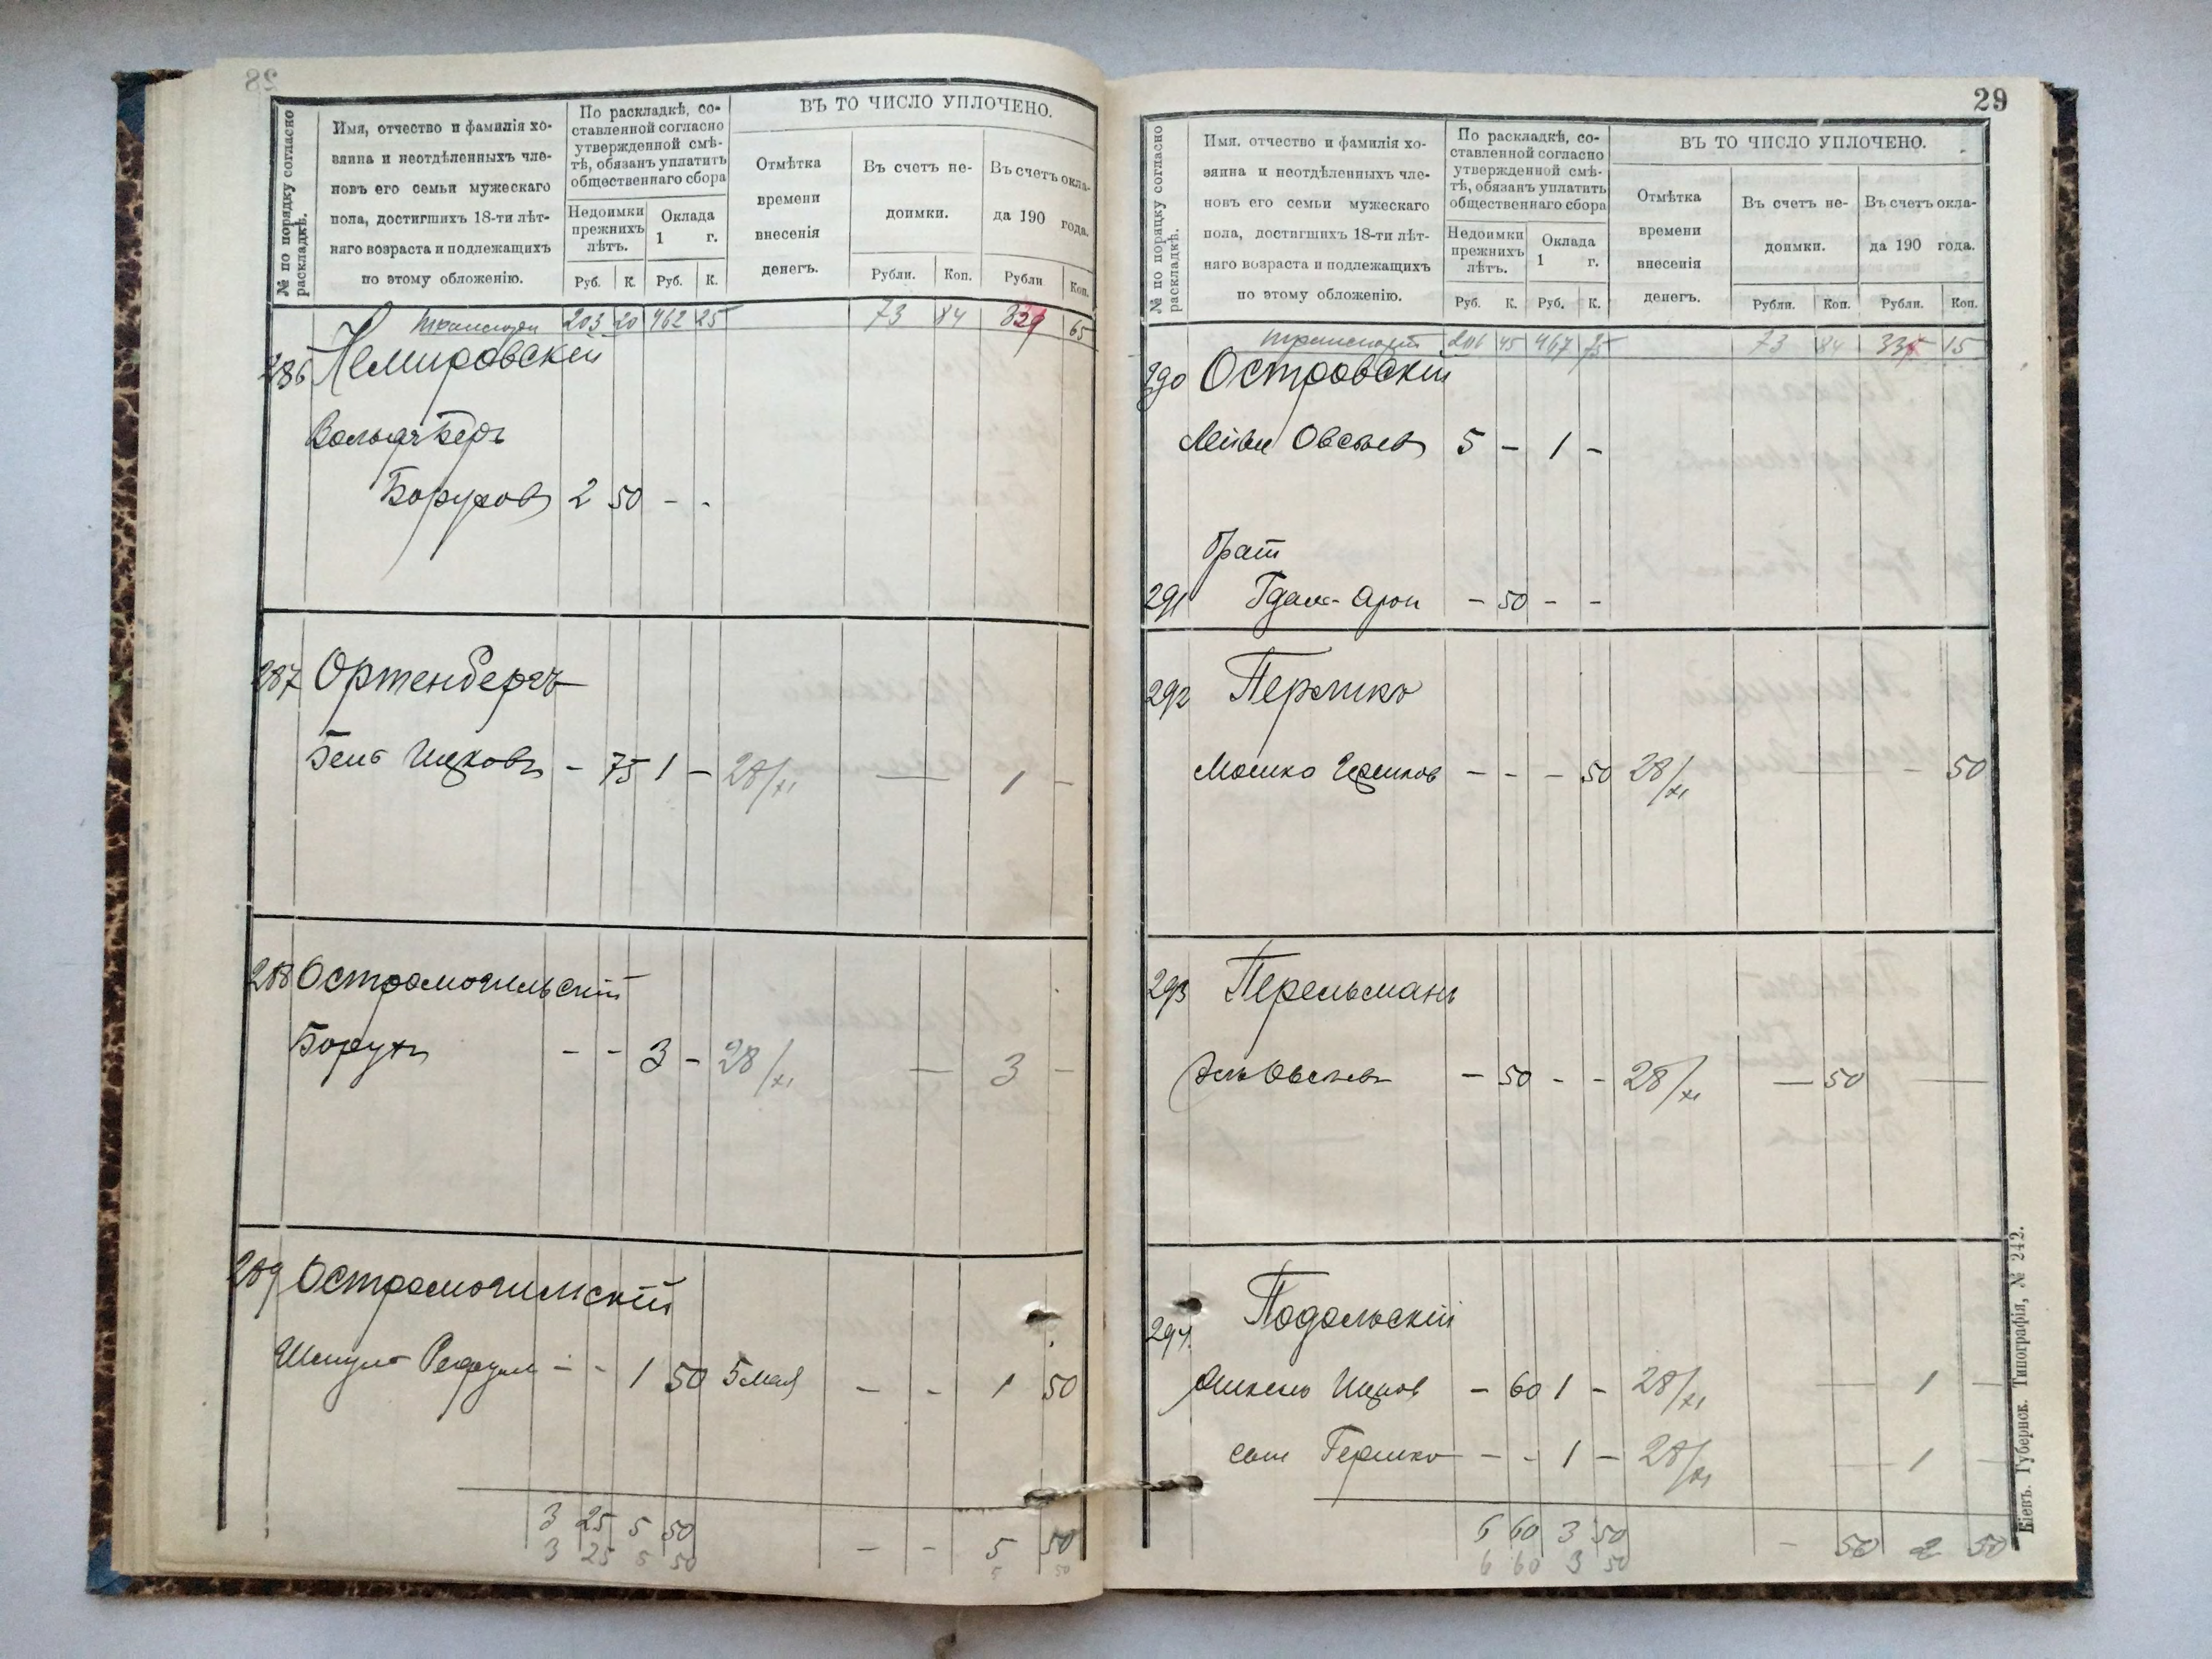 № по порядку согласно раскладкѣ.
Имя, отчество и фамилія хо-
зяина и неотдѣленныхъ чле-
новъ его семьи мужескаго
пола, достигшихъ 18-ти лѣт-
няго возраста и подлежащихъ
по этому обложенію.
По раскладкѣ, со-
ставленной согласно
утвержденной смѣ-
тѣ, обязанъ уплатить
общественнаго сбора
Недоимки прежнихъ лѣтъ.
Оклада 1 г.
Руб. К. Руб. К.
ВЪ ТО ЧИСЛО УПЛОЧЕНО.
Отмѣтка времени внесенія денегъ.
Въ счетъ не-
доимки.
Рубли. Коп.
Въ счетъ окла-
да 190 года.
Рубли Коп.
транспорт 203 20 462 25 73 84 329 65
286 Немировскій
Вольф Беръ
Борухов 2 50 - -
287 Ортенбергъ
Бенц Ицковъ - 75 1 - 28/XI — 1 -
288 Остромогильскій
Борухъ - - 3 - 28/XI — 3 -
289 Остромогильскій
- - 1 50 5 мая - - 1 50
3 25 5 50 - - 5 50
3 25 5 50 5 50
29
№ по порядку согласно раскладкѣ.
Имя. отчество и фамилія хо-
зяина и неотдѣленныхъ чле-
новъ его семьи мужескаго
пола, достигшихъ 18-ти лѣт-
няго возраста и подлежащихъ
по этому обложенію.
По раскладкѣ, со-
ставленной согласно
утвержденной смѣ-
тѣ, обязанъ уплатить
общественнаго сбора
Недоимки прежнихъ лѣтъ.
Оклада 1 г.
Руб. К. Руб. К.
ВЪ ТО ЧИСЛО УПЛОЧЕНО.
Отмѣтка времени внесенія денегъ.
Въ счетъ не-
доимки.
Рубли. Коп.
Въ счетъ окла-
да 190 года.
Рубли. Коп.
транспорт 206 45 467 75 73 84 335 15
290 Островскій
Лейви Овсеев 5 - 1 -
брат
291 Гдал-Арон - 50 - -
292 Перлико
Мошко - - - 50 28/XI — - 50
293 Перельманъ
Овсеевъ - 50 - - 28/XI — 50 —
294. Подольскій
Ицков - 60 1 - 28/XI — 1 -
сын Гершко - - 1 - 28/XI — 1 -
6 60 3 50 - 50 2 50
6 60 3 50
Кіевъ. Губернск. Типографія, № 242.